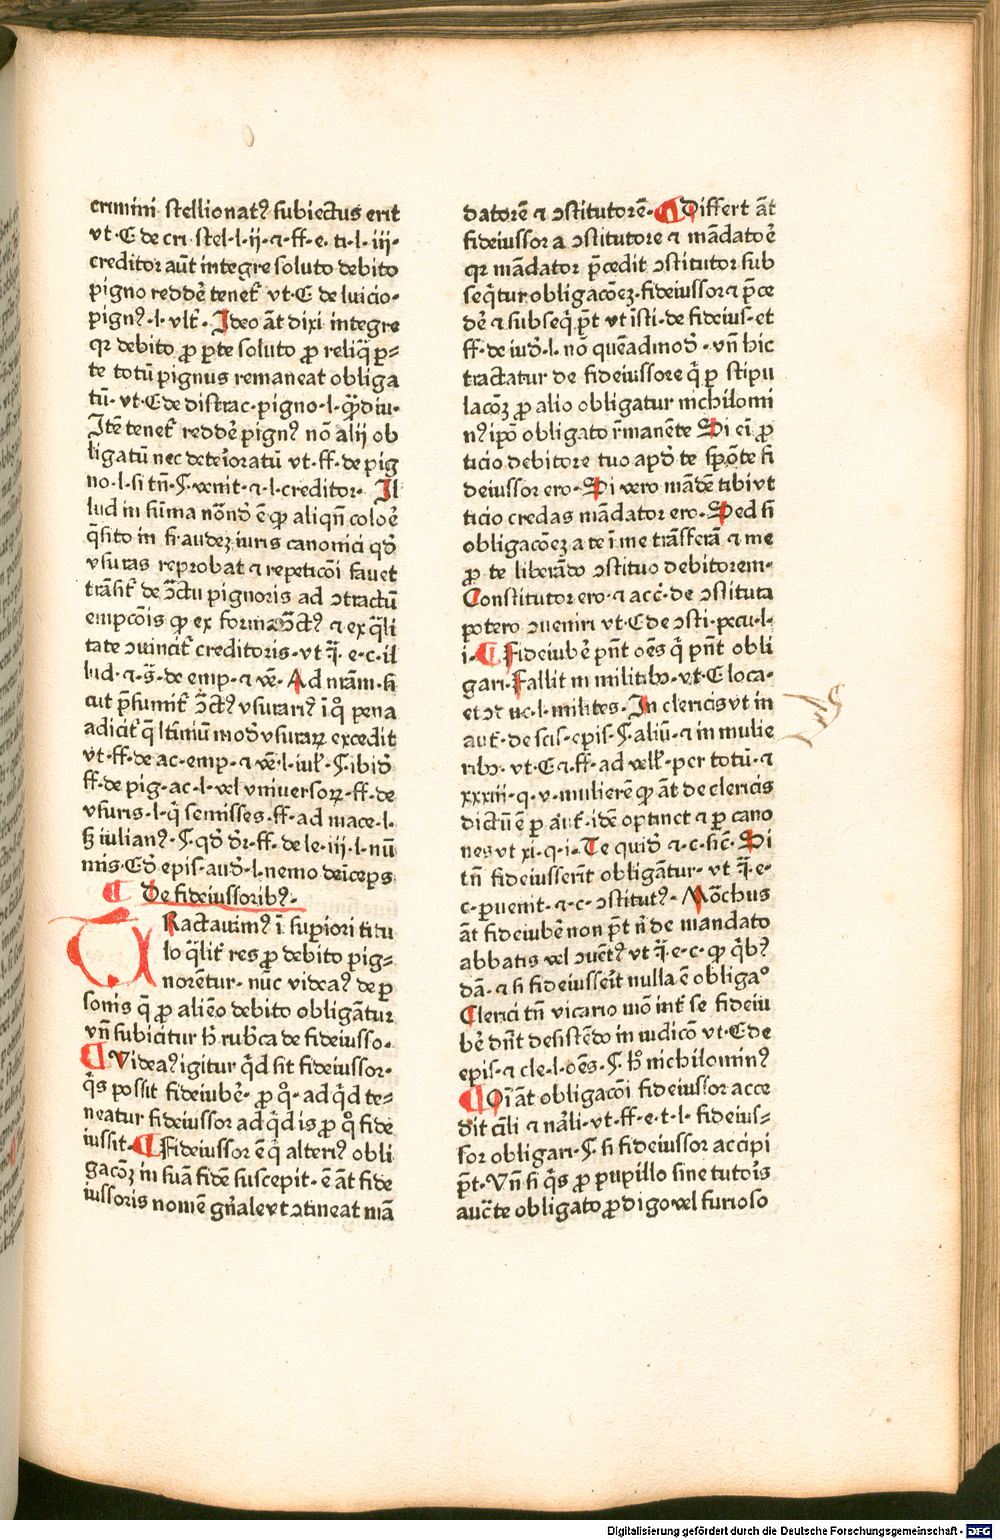 crimini stellionatꝰ subiectus erit
vt·C de cri·stel·l·ij·⁊·ff·e·ti·l·iii·
creditor aūt integre soluto debito
pigno reddē tenet᷑ vt·C de luicio·
pignꝰ·l·vlt᷑·Ideo āt dixi integre
qꝛ debito ꝓ ꝑte soluto ꝓ reliq̄ ꝑ⸗
te totū pignus remaneat obliga
tū·vt·C de distrac·pigno·l·q̄ꝫdiu·
Itē tenet᷑ reddē pignꝰ nō alij ob
ligatū nec deteioratū vt·ff·de pig
no·l·si tn̄·§·venit·⁊·l·creditor·Il
lud in sūma nōnd᷑ ē ꝙ aliqn̄ coloē
q̄sito in fraudeꝫ iuris canonici qd᷑
vsuras reprobat ⁊ repeticōi fauet
trāsit᷑ de ↄ̄ctu pignoris ad ↄtractū
empcōis ꝙ ex forma ↄ̄ctꝰ ⁊ ex q̄li
tate ↄuincit᷑ creditoris·vt q̄·e·c·il
lud·⁊·s̄·de emp·⁊ vē·Ad nr̄am·si
cut p̄sumit᷑ ↄ̄ctꝰ vsurariꝰ i qͦ pena
adicit᷑ q̄ ltimū mod᷑ vsuraꝝ excedit
vt·ff·de ac·emp·⁊ vē·l·iul᷑·§·ibid᷑
ff·de pig·ac·l·vel vniuersoꝝ·ff·de
vsuris·l·q̄ semisses·ff·ad mace·l·
sꝫ iulianꝰ·§·qd᷑ dr̄·ff·de le·iij·l·nū
mis·Ed᷑ epis·aud᷑·l·nemo deiceps
¶ De fideiussoribꝰ·
TRactauimꝰ ī suꝑiori titu
lo q̄lit᷑ res ꝓ debito pig⸗
norētur·nūc videaꝰ de ꝑ
sonis q̄ ꝓ alieō debito obligātur
vn̄ subicitur h̄ rubꝛca de fideiusso·
¶ Videaꝰ igitur q̄d sit fideiussor·
q̄s possit fideiubē·ꝓ qͦ·ad q̄d te⸗
neatur fideiussor ad q̄d is ꝓ qͦ fide
iussit·¶ Fideiussor ē q̄ alteriꝰ obli
gacōꝫ in suā fidē suscepit·ē āt fide
iussoris nomē gn̄ale vt ↄtineat mā
datorē ⁊ ↄstitutorē·¶ Differt āt
fideiussor a ↄstitutore ⁊ mādatoē
qꝛ mādator p̄cedit ↄstitutor sub
seq̄tur obligacōeꝫ·fideiussor ⁊ p̄ce
dē ⁊ subseq̄ p̄t vt isti·de fideius·et
ff·de iud᷑·l·nō quēadmod᷑·vn̄ hic
tractatur de fideiussore q̄ ꝑ stipu
lacōꝫ ꝓ alio obligatur nichilomi
nꝰ ipō obligato r̄manēte Si eī ꝓ
ticio debitore tuo apd᷑ te spōte fi
deiussor ero·Si vero mādē tibi vt
ticio credas mādator ero·Sed si
obligacōeꝫ a te ī me trāsferā ⁊ me
ꝓ te liberādo ↄstituo debitorem·
Constitutor ero·⁊ acc̄·de ↄstituta
potero ↄueniri vt·C de ↄsti·pecu·l·
i·¶ Fideiubē pn̄t oēs q̄ pn̄t obli
gari·Fallit in militibꝰ·vt·C loca·
et ↄduc·l·milites·In clericis vt in
aut᷑·de scis·epis·§·aliū·⁊ in mulie
ribꝰ·vt·C ⁊·ff·ad vell᷑·per totū·⁊
xxxiii·q·v·mulierē ꝙ āt de clericis
dictū ē ꝑ aut᷑·idē optinet ⁊ ꝑ cano
nes vt xi·q·i·Te quid᷑ ⁊·c·sic̄·Si
tn̄ fideiusserīt obligātur·vt q̄·e·
c·ꝑuenit·⁊·c·ↄstitutꝰ·Mōchus
āt fideiubē non p̄t n̄ de mandato
abbatis vel ↄuētꝰ vt q̄·e·c·ꝙ q̄bꝰ
dā·⁊ si fideiusseīt nulla ē obligaͦ
Clerici tn̄ vicario mō int᷑ se fideiu
bē dn̄t desistēdo in iudicō vt·C de
epis·⁊ cle·l·oēs·§·hͦ nichilominꝰ
¶ Oī āt obligacōi fideiussor acce
dit cili ⁊ nāli·vt·ff·e·t·l·fideius⸗
sor obligari·§·si fideiussor accipi
p̄t·Vn̄ si q̄s ꝓ pupillo sine tutoīs
auc̄te obligato ꝓdigo vel furioso
Digitalisierung gefördert durch die Deutsche Forschungsgemeinschaft - DFG